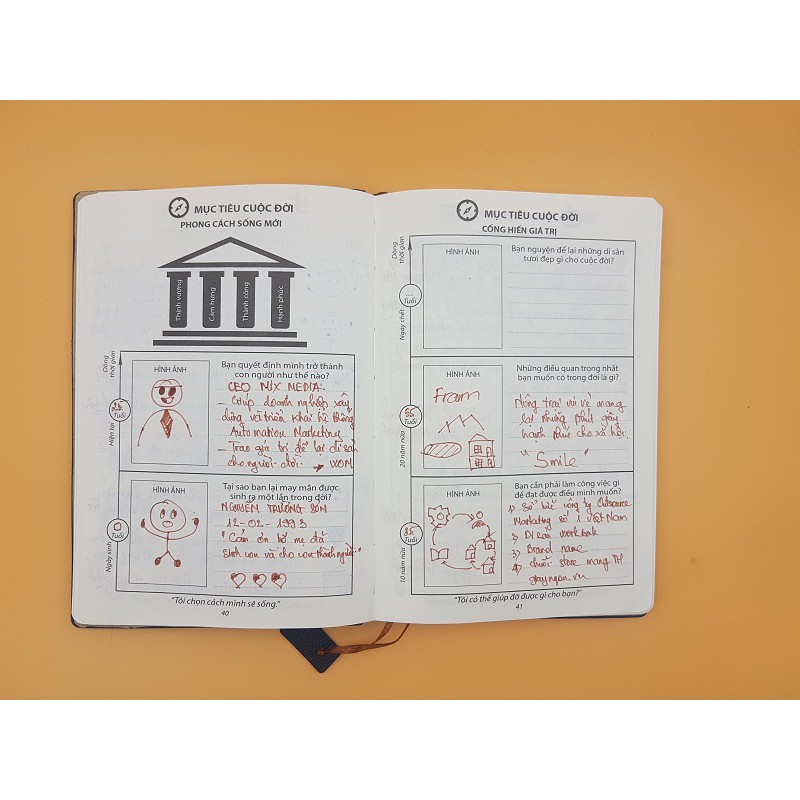 MỤC TIÊU CUỘC ĐỜI
PHONG CÁCH SỐNG MỚI
Thịnh vượng
Cảm hứng
Thành công
Hạnh phúc
Dòng
thời gian
HÌNH ẢNH
Bạn quyết định mình trở thành
con người như thế nào?
CEO MIX MEDIA.
- Giúp doanh nghiệp xây
dựng và triển khai hệ thống
Automation Marketing
- Trao giá trị để lại di sản
cho người đời.
Tuổi
Hiện tại
HÌNH ẢNH
Tại sao bạn lại may mắn được
sinh ra một lần trong đời?
NGHIÊM TRƯỜNG SƠN
12-02-1993
"Cảm ơn bố mẹ đã
sinh con và cho con thành người"
0
Tuổi
Ngày sinh
"Tôi chọn cách mình sẽ sống."
40
MỤC TIÊU CUỘC ĐỜI
CỐNG HIẾN GIÁ TRỊ
Dòng
thời gian
HÌNH ẢNH
Bạn nguyện để lại những di sản
tươi đẹp gì cho cuộc đời?
...
Tuổi
Ngày chết
HÌNH ẢNH
Những điều quan trọng nhất
bạn muốn có trong đời là gì?
Fram
Nông trại vui vẻ mang
lại những phút giây
hạnh phúc cho xã hội.
"Smile"
Tuổi
20 năm nữa
HÌNH ẢNH
Bạn cần phải làm công việc gì
để đạt được điều mình muốn?
công ty Outsource
Marketing số 1 Việt Nam
2) Di sản workbook
3) Brand name
4) chuỗi store mang TH
Tuổi
10 năm nữa
"Tôi có thể giúp đỡ được gì cho bạn?"
41